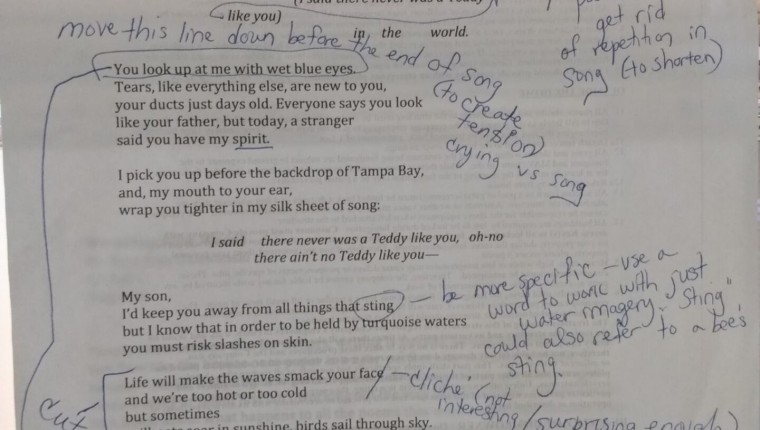 like you)
in the world.
move this line down before the end of song
(to create tension)
crying vs song
get rid
of repetition in
song (to shorten)
You look up at me with wet blue eyes.
Tears, like everything else, are new to you,
your ducts just days old. Everyone says you look
like your father, but today, a stranger
said you have my spirit.
I pick you up before the backdrop of Tampa Bay,
and, my mouth to your ear,
wrap you tighter in my silk sheet of song:
I said there never was a Teddy like you, oh-no
there ain't no Teddy like you—
My son,
I'd keep you away from all things that sting
but I know that in order to be held by turquoise waters
you must risk slashes on skin.
be more specific – use a
word to work with just
water imagery. "Sting"
could also refer to a bee's
sting.
Life will make the waves smack your face
and we're too hot or too cold
but sometimes
in sunshine, birds sail through sky.
cliché (not
interesting / surprising enough)
Cut